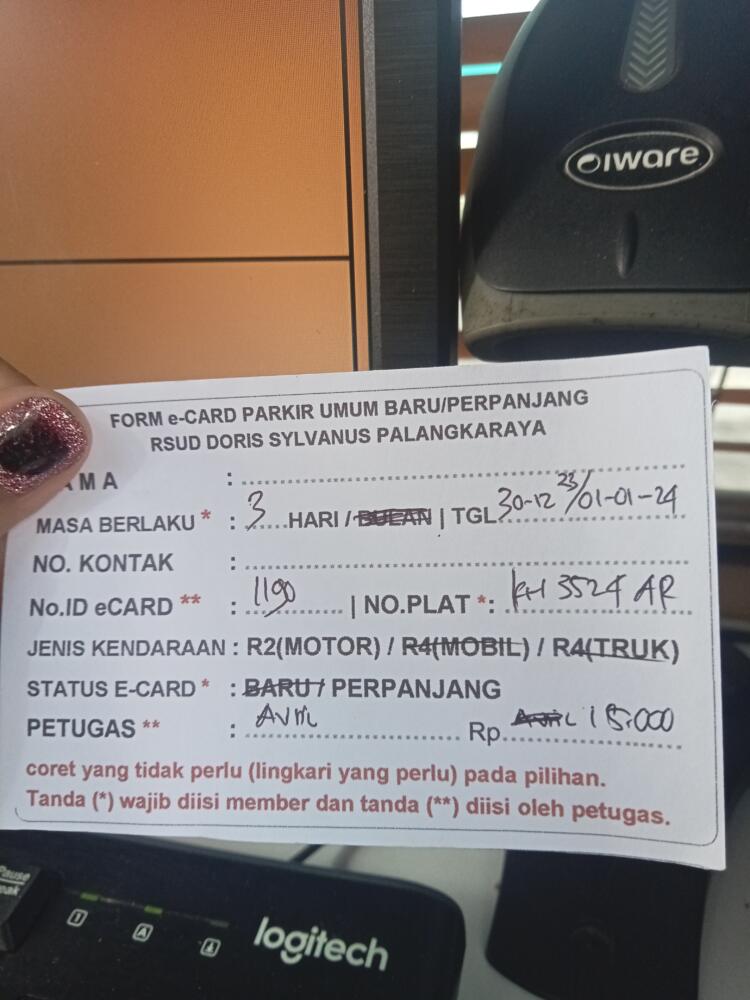 iware
FORM e-CARD PARKIR UMUM BARU/PERPANJANG
RSUD DORIS SYLVANUS PALANGKARAYA
AMA :
MASA BERLAKU * : 3 HARI / BULAN | TGL 30-12 23/01-01-24
NO. KONTAK :
No.ID eCARD ** : 1190 | NO.PLAT *: KH 3524 AR
JENIS KENDARAAN : R2(MOTOR) / R4(MOBIL) / R4(TRUK)
STATUS E-CARD * : BARU / PERPANJANG
PETUGAS ** : Avril Rp 15.000
coret yang tidak perlu (lingkari yang perlu) pada pilihan.
Tanda (*) wajib diisi member dan tanda (**) diisi oleh petugas.
Pause
1 A
logitech